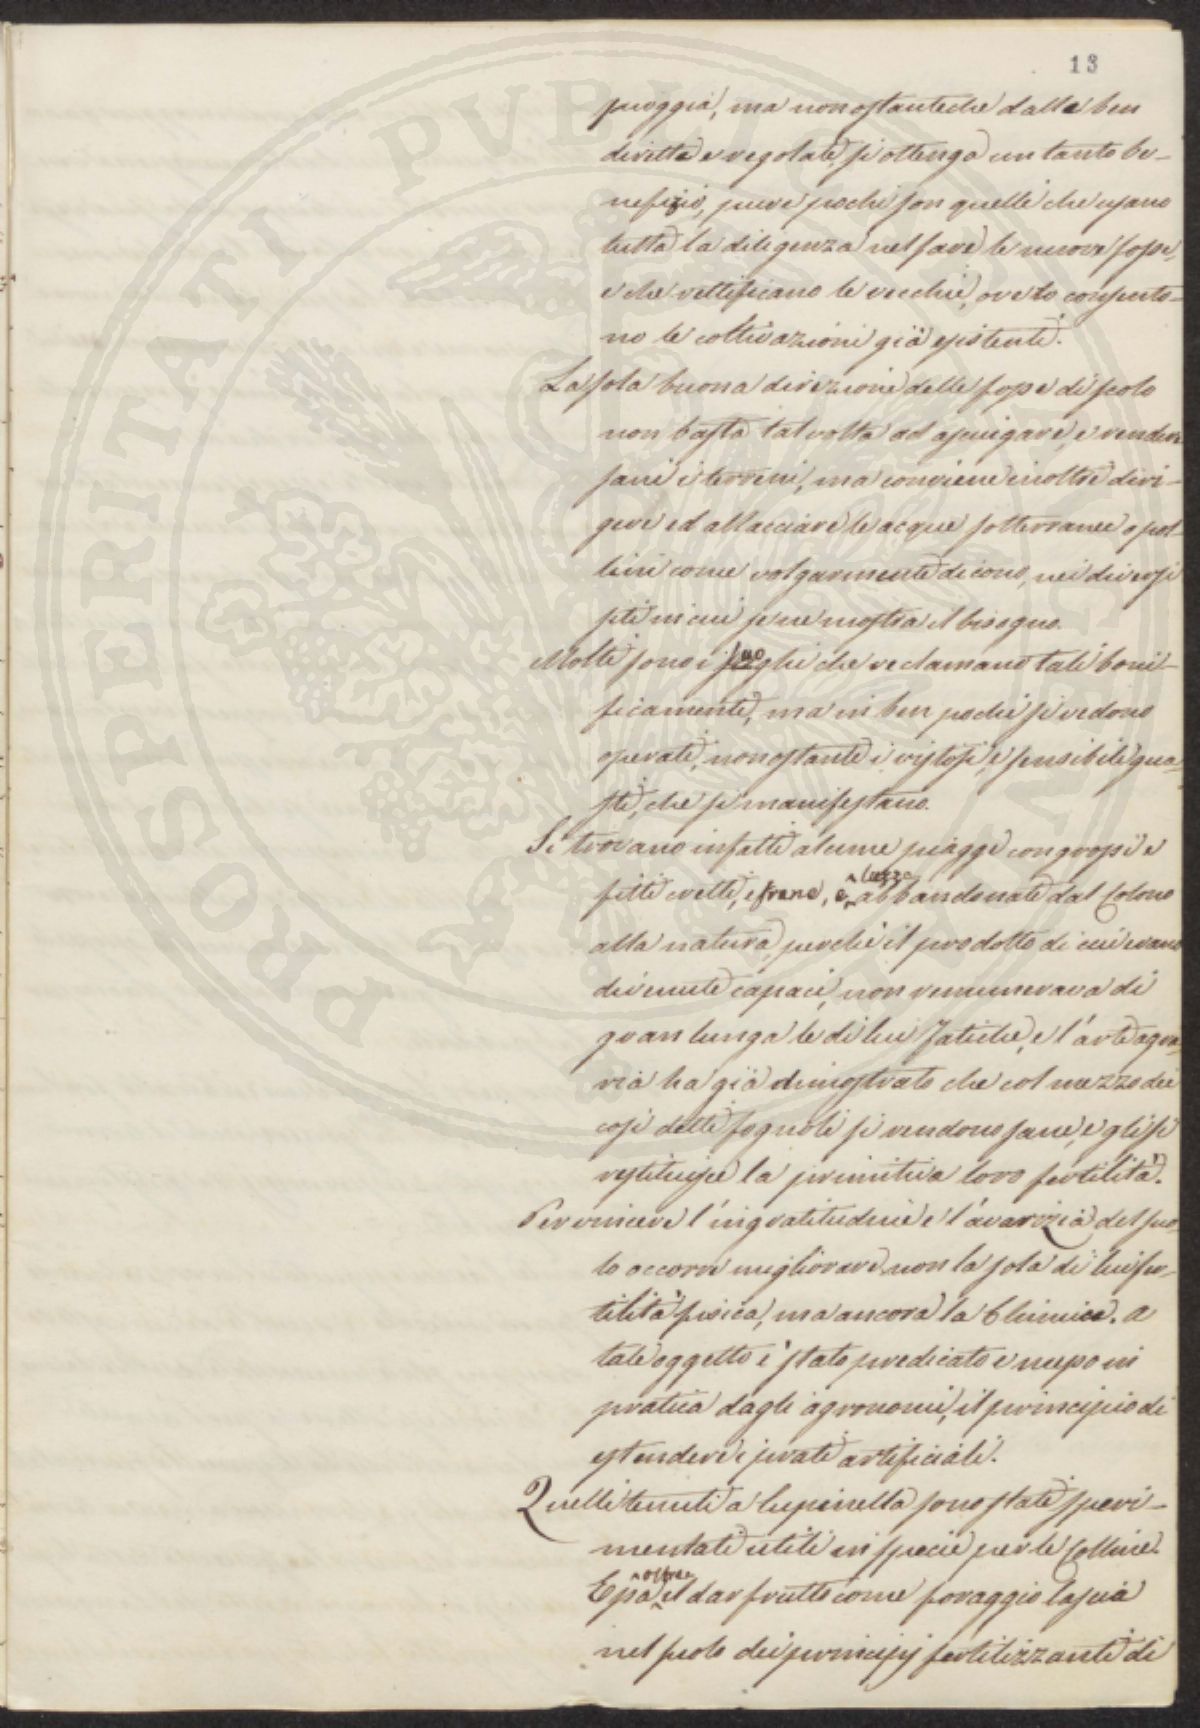 13
pioggia, ma nonostanteche dalle ben
dirette e regolate si ottenga un tanto be-
nefizio, pure pochi son quelli che usano
tutta la diligenza nel fare le nuove fosse,
e che rettificano le vecchie, ove lo consento-
no le coltivazioni già esistenti.
La sola buona direzione delle fosse di scolo
non basta talvolta ad asciugare, e rendere
sani i terreni, ma conviene inoltre diri-
gere ed allacciare le acque sotterranee o pol-
lini come volgarmente dicono, nei diversi
siti in cui se ne mostra il bisogno.
Molti sono i luoghi che reclamano tali boni-
ficamenti, ma in ben pochi si vedono
operati, nonostante i vistosi, e sensibili gua-
sti, che si manifestano.
Si trovano infatti alcune piagge con grossi e
fitti cretti, e frane, e lezze abbandonate dal Colono
alla natura, perchè il prodotto di cui erano
divenute capaci, non remunerava di
gran lunga le di lui fatiche, e l'arte agra-
ria ha già dimostrato che col mezzo dei
così detti fognoli si rendono sane, e gli si
restituisce la primitiva loro fertilità.
Per vincere l'ingratitudine e l'avarizia del suo-
lo occorre migliorare non la sola di lui fer-
tilità fisica, ma ancora la Chimica. A
tale oggetto è stato predicato e messo in
pratica dagli agronomi, il principio di
estendere i prati artificiali.
Quelli tenuti a lupinella sono stati speri-
mentati utili in specie per le Colline.
Essa oltre il dar frutto come foraggio lascia
nel suolo dei principj fertilizzanti di